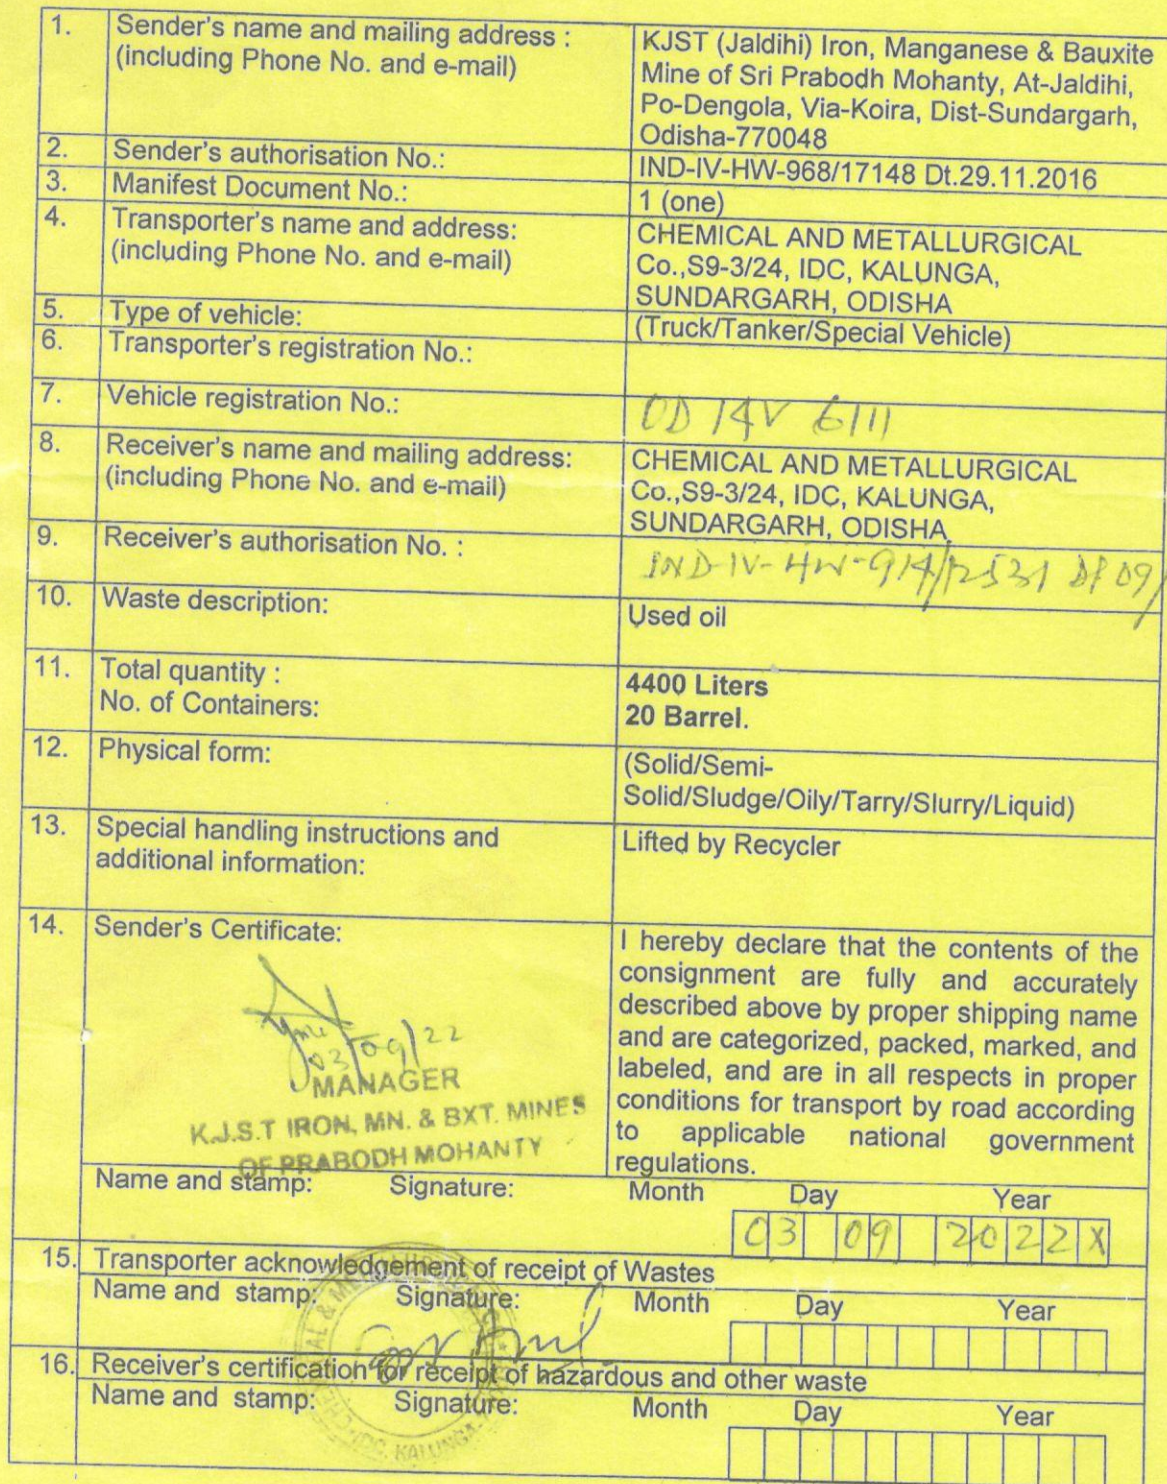 1. Sender's name and mailing address :
(including Phone No. and e-mail)
KJST (Jaldihi) Iron, Manganese & Bauxite
Mine of Sri Prabodh Mohanty, At-Jaldihi,
Po-Dengola, Via-Koira, Dist-Sundargarh,
Odisha-770048
2. Sender's authorisation No.:
IND-IV-HW-968/17148 Dt.29.11.2016
3. Manifest Document No.:
1 (one)
4. Transporter's name and address:
(including Phone No. and e-mail)
CHEMICAL AND METALLURGICAL
Co.,S9-3/24, IDC, KALUNGA,
SUNDARGARH, ODISHA
5. Type of vehicle:
(Truck/Tanker/Special Vehicle)
6. Transporter's registration No.:
7. Vehicle registration No.:
OD 14V 6111
8. Receiver's name and mailing address:
(including Phone No. and e-mail)
CHEMICAL AND METALLURGICAL
Co.,S9-3/24, IDC, KALUNGA,
SUNDARGARH, ODISHA
9. Receiver's authorisation No. :
IND-IV-HW-914/12531 Dt 09/
10. Waste description:
Used oil
11. Total quantity :
No. of Containers:
4400 Liters
20 Barrel.
12. Physical form:
(Solid/Semi-
Solid/Sludge/Oily/Tarry/Slurry/Liquid)
13. Special handling instructions and
additional information:
Lifted by Recycler
14. Sender's Certificate:
03/09/22
MANAGER
K.J.S.T IRON, MN. & BXT. MINES
OF PRABODH MOHANTY
I hereby declare that the contents of the
consignment are fully and accurately
described above by proper shipping name
and are categorized, packed, marked, and
labeled, and are in all respects in proper
conditions for transport by road according
to applicable national government
regulations.
Name and stamp: Signature: Month Day Year
03 09 2022 X
15. Transporter acknowledgement of receipt of Wastes
Name and stamp: Signature: Month Day Year
16. Receiver's certification for receipt of hazardous and other waste
Name and stamp: Signature: Month Day Year
IDC, KALUNGA